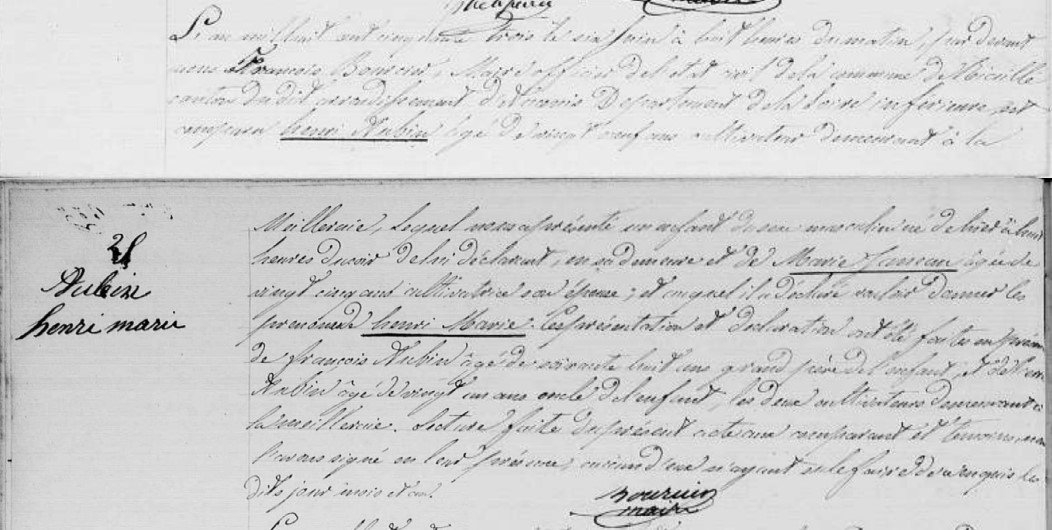 L'an mil huit cent cinquante trois le six Juin à huit heures du matin, par devant
nous François Boursier, Maire officier de l'état civil de la commune de
canton du dit arrondissement d'Ancenis Département de la Loire inférieure, est
comparu henri Aubin âgé de vingt neuf ans cultivateur demeurant à la
Meilleraie, lequel nous a présenté un enfant du sexe masculin né de hier à huit
heures du soir de lui déclarant, en sa demeure et de Marie âgée de
vingt cinq ans cultivatrice son épouse; et auquel il a déclaré vouloir donner les
prénoms de henri Marie. Les présentation et déclaration ont été faites en
de françois Aubin âgé de soixante huit ans grand père de l'enfant, et de
Aubin âgé de vingt un ans oncle de l'enfant, les deux cultivateurs demeurant à
la meilleraie. Lecture faite du présent acte aux comparant et témoins, nous
l'avons signé en leur présence, aucun d'eux n'ayant su le faire de ce requis les
dits jour mois et an.
21
Aubin
henri marie
maire